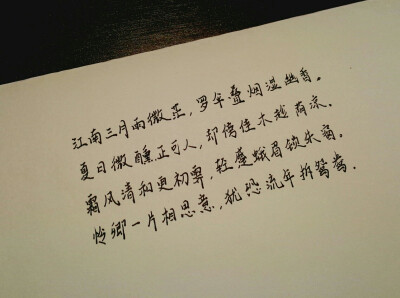 江南三月雨微茫，罗伞叠烟湿幽香。
夏日微醺正可人，却傍佳木趁荫凉。
霜风清和更初霁，轻蹙蛾眉锁朱窗。
怜卿一片相思意，犹恐流年拆鸳鸯。